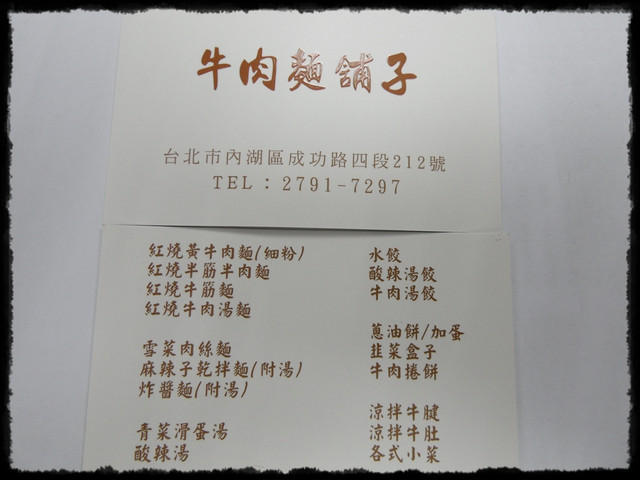 牛肉麵舖子
台北市內湖區成功路四段212號
TEL：2791-7297
紅燒黃牛肉麵(細粉)
紅燒半筋半肉麵
紅燒牛筋麵
紅燒牛肉湯麵
雪菜肉絲麵
麻辣子乾拌麵(附湯)
炸醬麵(附湯)
青菜滑蛋湯
酸辣湯
水餃
酸辣湯餃
牛肉湯餃
蔥油餅/加蛋
韭菜盒子
牛肉捲餅
涼拌牛腱
涼拌牛肚
各式小菜